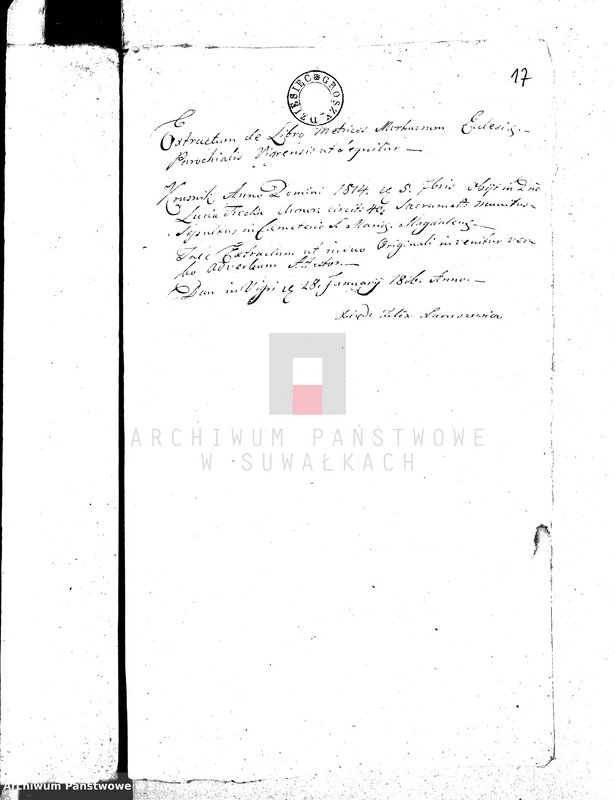 17
DZIESIĘC GROSZY
Extractum de Libro Metrices Mortuorum Eclesiæ
Parochialis Vigrensis ut sequitur
Krusnik Anno Domini 1814. 5. 7bris obijt in Dno
Lucia circit: 40. Sacramat: munitus
Sepultus in Cæmeterio S. Mariæ Magdalenæ
Tale Extractum ut in suo Originali invenitur ver-
bo adverbum Attestor.
Dan in Vigri 28. January 1816. Anno.
Xiądz Felix
ARCHIWUM PAŃSTWOWE
W SUWAŁKACH
Archiwum Państwowe